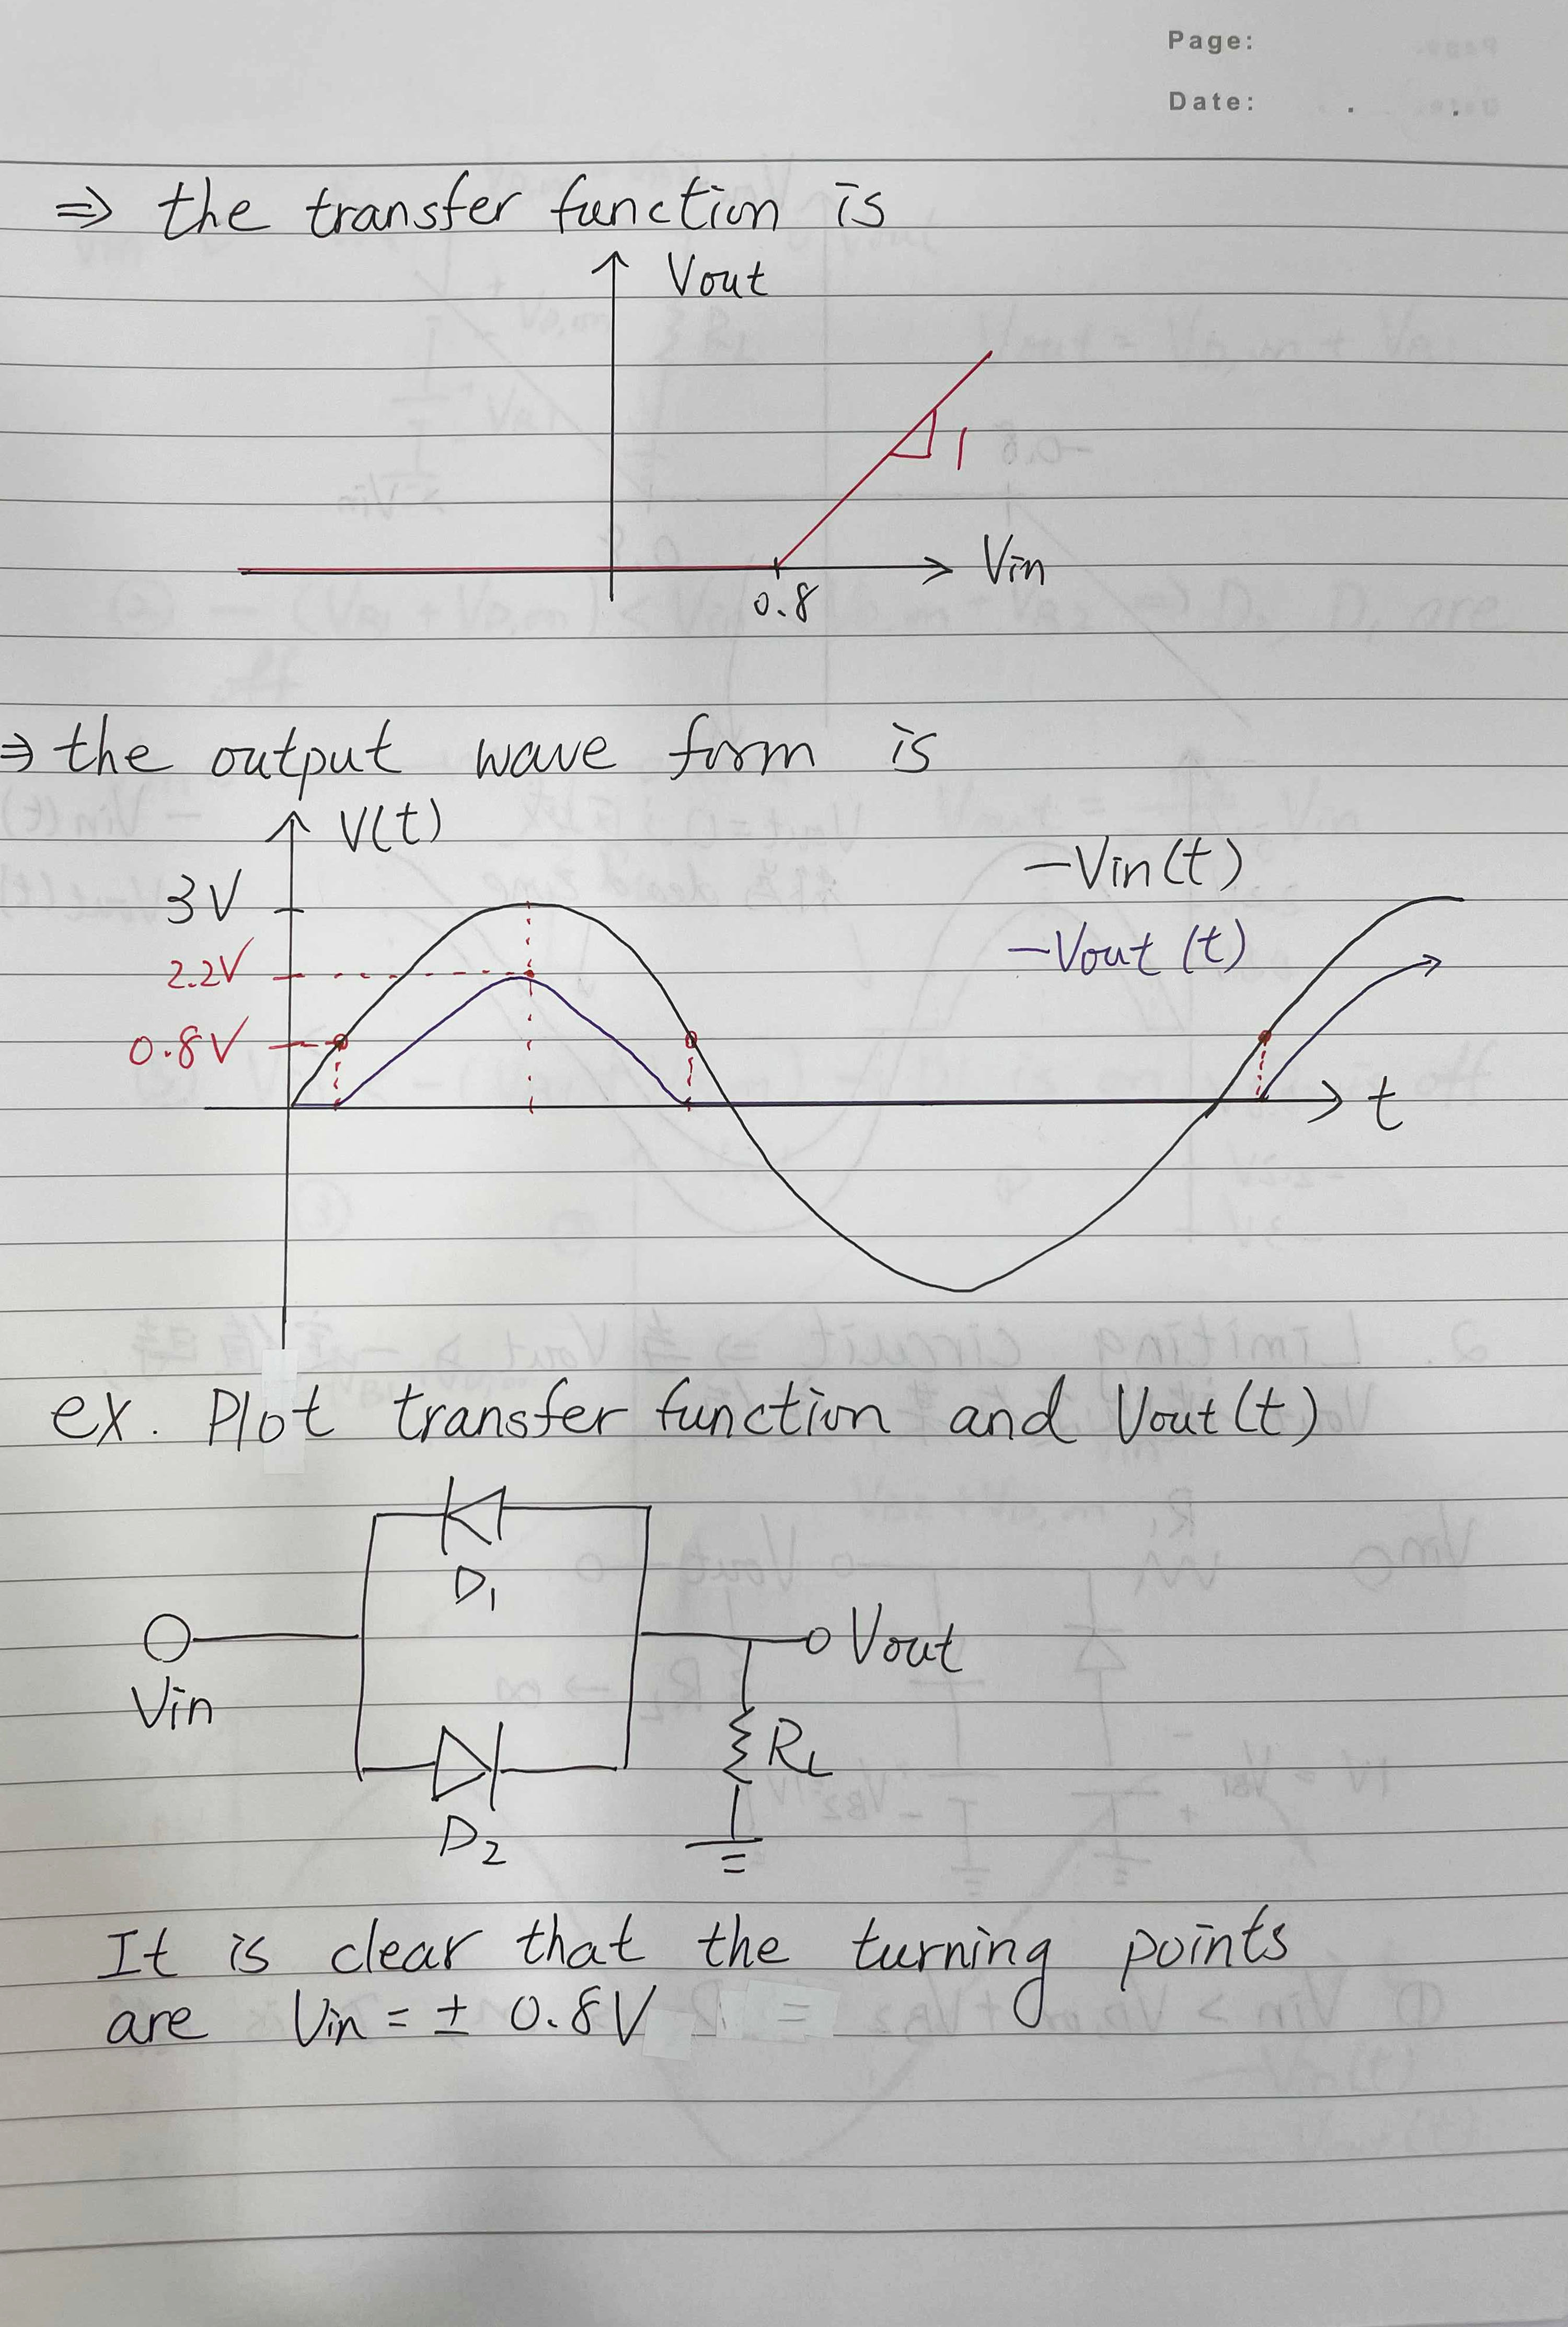 Page:
Date: . .
⇒ the transfer function is
Vout
1
Vin
0.8
⇒ the output wave form is
V(t)
3V
2.2V
0.8V
—Vin(t)
—Vout (t)
t
ex. Plot transfer function and Vout(t)
D1
Vin
Vout
RL
D2
It is clear that the turning points
are Vin = ± 0.8V